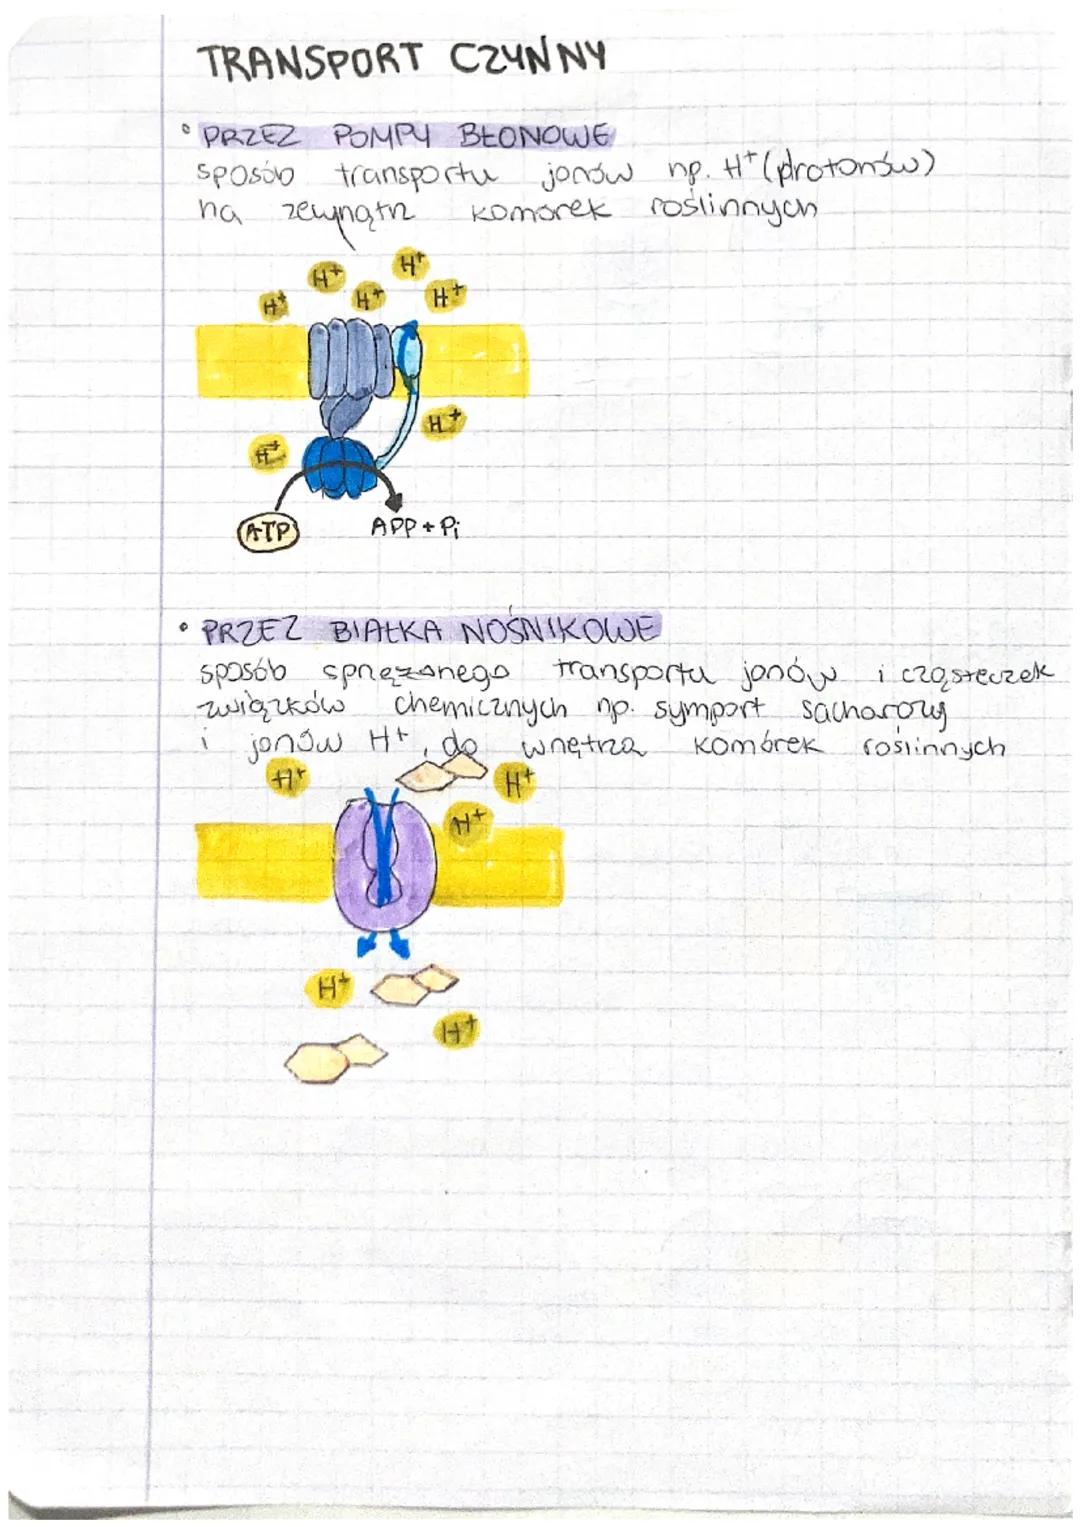 TRANSPORT CZYNNY
• PRZEZ POMPY BŁONOWE
sposób transportu jonów np. H+ (protonów)
na zewnątrz komórek roślinnych
H+ H+ H+ H+ H+
H+
H+
ATP APP + Pi
• PRZEZ BIAŁKA NOŚNIKOWE
sposób sprzężonego transportu jonów i cząsteczek
związków chemicznych np. symport sacharozy
i jonów H+, do wnętrza komórek roślinnych
H+ H+
H+
H+
H+